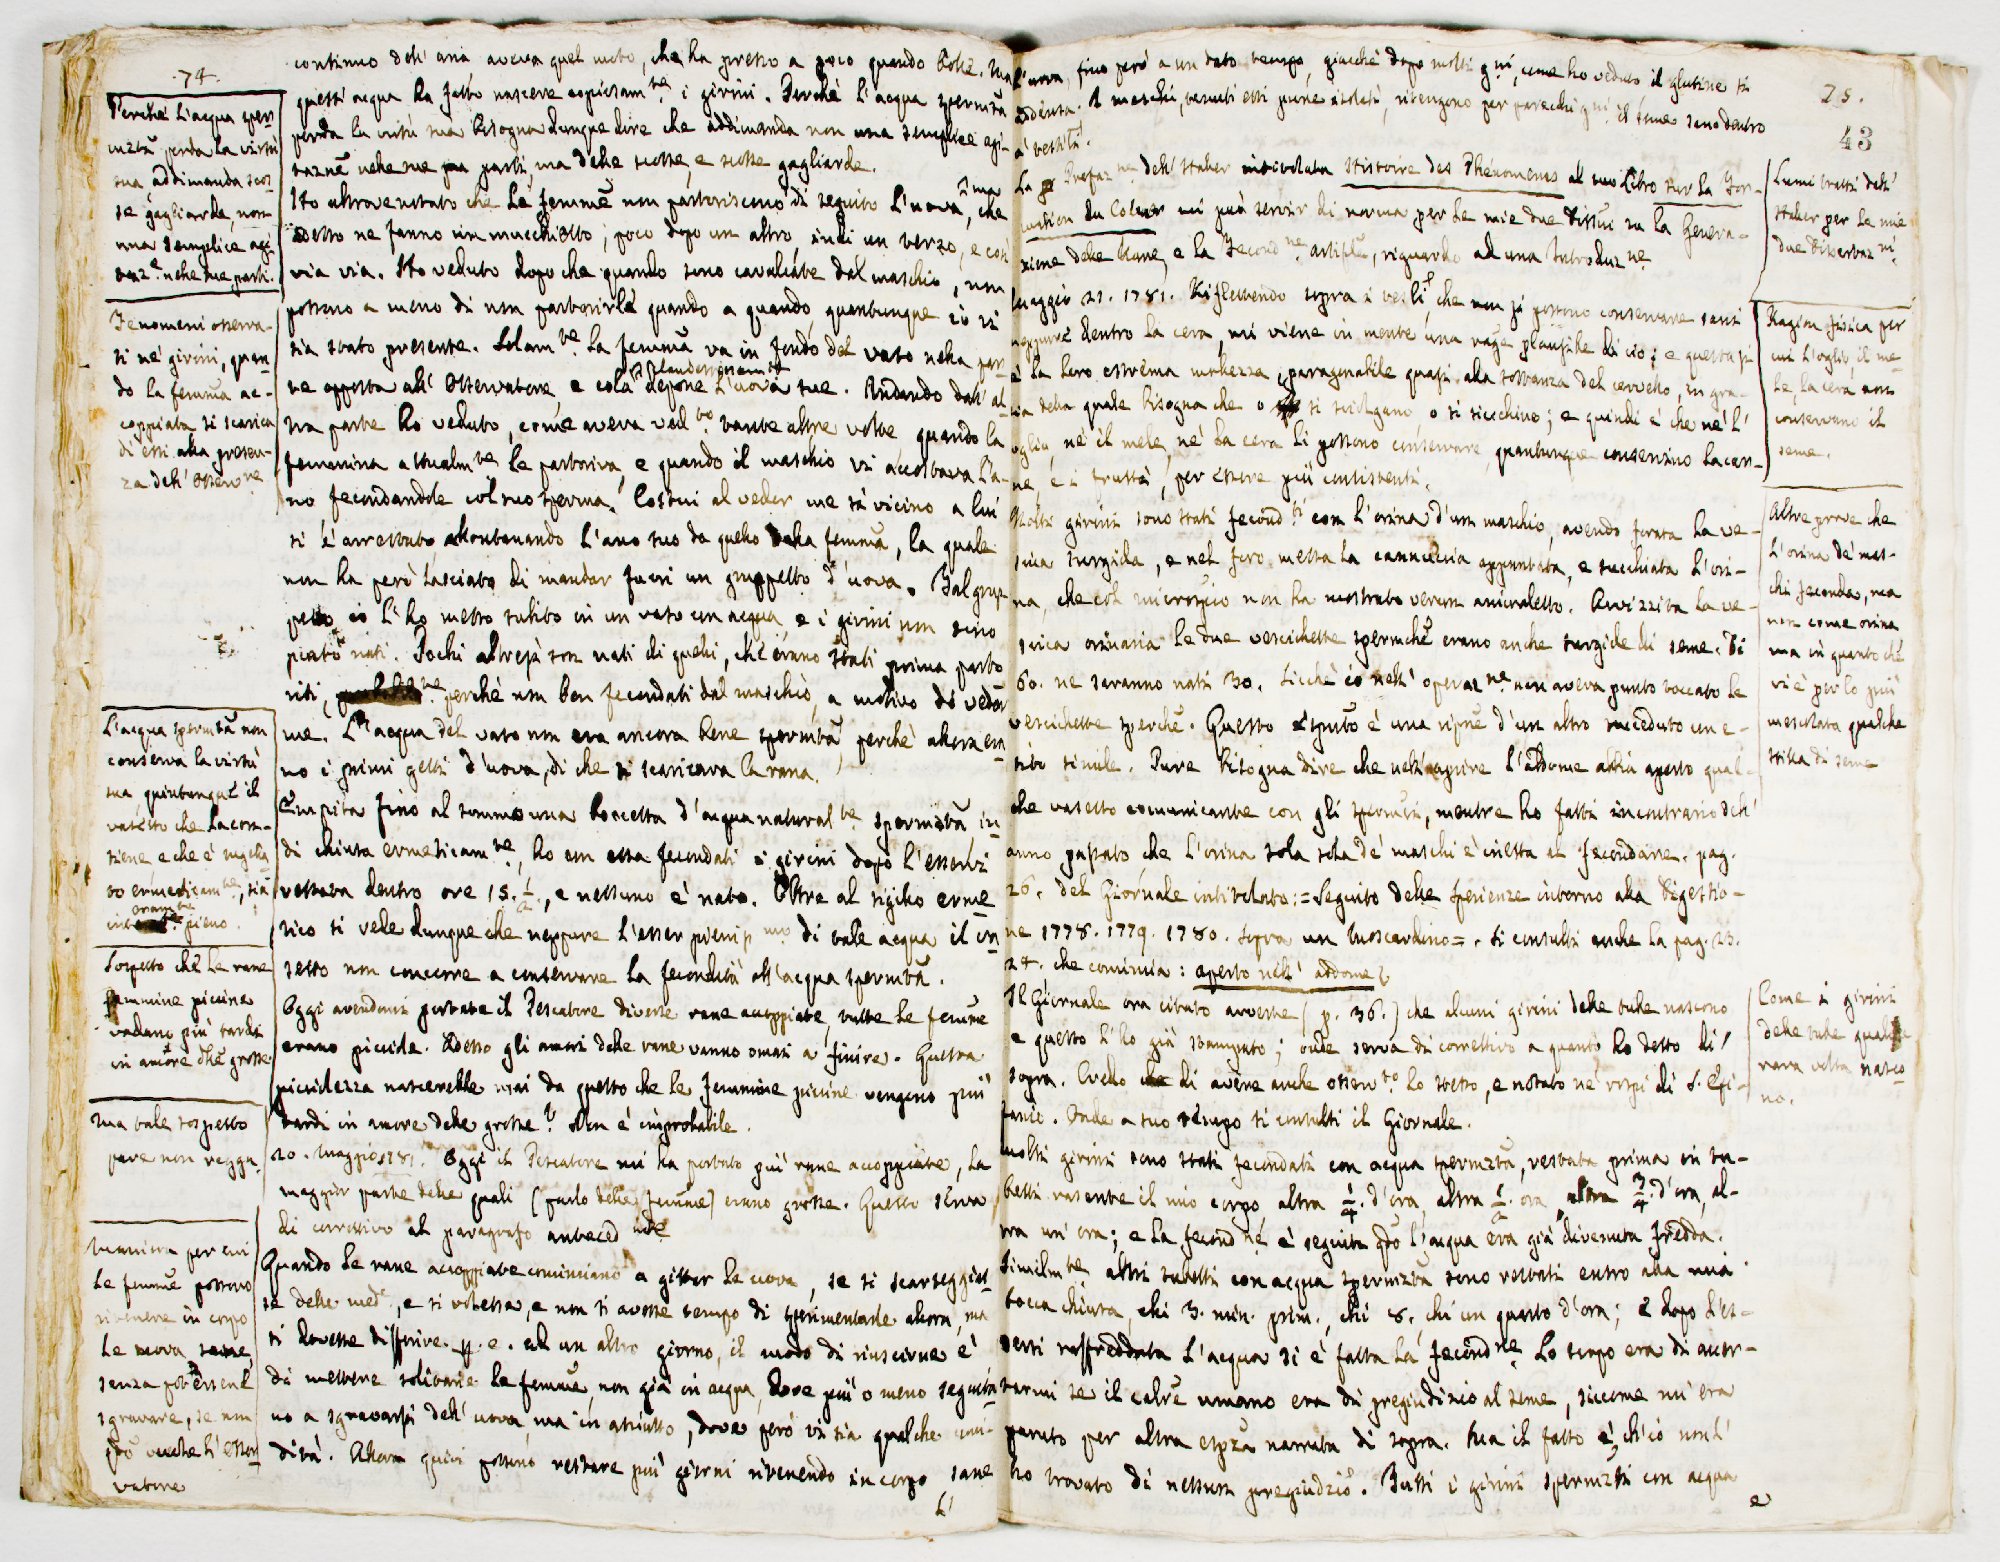 .74.
Perchè l'acqua sper-
mzta perda la virtù
sua addimanda scos-
se gagliarde, non
una semplice agi-
taz.e nelle sue parti.
Fenomeni osserva-
ti ne' girini, quan-
do la femina ac-
coppiata si scarica
di essi alla presen-
za dell' Osserv.re
L'acqua spermzta non
conserva la virtù
sua, quantunque il
vasetto che la con-
tiene e che è sigilla
to ermeticam.te, sia
pieno.
Sospetto che le rane
femmine piccine
vadano più tardi
in amore che grosse
Ma tale sospetto
pare non regga.
Maniera per cui
le femine possono
ritenere in corpo
le uova
senza potersene
sgravare, se non
qdo vuole l'Osser
vatore
continuo dell' aria aveva quel moto, che ha presso a poco quando bolle. Ma
quest' acqua ha fatto nascere copiosam.te i girini. Perchè l'acqua spermzta
perda la virtù sua bisogna dunque dire che addimanda non una semplice agi-
tazne nelle sue parti, ma delle scosse, e scosse gagliarde.
Ho altrove notato che le femine non partoriscono di seguito l'uova, che
adesso ne fanno un mucchietto; poco dopo un altro, indi un terzo, e così
via via. Ho veduto dopo che quando sono cavalcate dal maschio, non
possono a meno di non partorirle quando a quando, quantunque io vi
sia stato presente. Solam.te la femina va in fondo del vaso nella par-
te opposta all' Osservatore e colà depone l'uova sue. Andando dall' al-
tra parte ho veduto, come aveva ved.to tante altre volte quando la
femmina attualm.te le partoriva, e quando il maschio vi accostava l'a-
no fecondandole col suo sperma. Costui al veder me sì vicino a lui
si è arrestato allontanando l'ano suo da quello della femina, la quale
non ha però lasciato di mandar fuori un gruppetto d'uova. Tal grup
petto io l'ho messo subito in un vaso con acqua e i girini non sono
nati. Pochi altresì son nati di quelli, ch'erano stati prima parto
riti, perchè non ben fecondati dal maschio, a motivo di veder
me. L'acqua del vaso non era ancora bene spermzta perchè allora era
no i primi getti d'uova, di che si scaricava la rana.
Empita fino al sommo una boccetta d'acqua natural.te spermzta in
di chiusa ermeticam.te, ho con essa fecondati i girini dopo l'esservi
restata dentro ore 15. 1/2., e nessuno è nato. Oltre al sigillo erme
tico si vede dunque che neppure l'esser pieniss.mo di tale acqua il va
setto non concorre a conservare la fecondità all'acqua spermzta.
Oggi avendomi portate il Pescatore diverse rane accoppiate, tutte le femine
erano piccole. Adesso gli amori delle rane vanno omai a finire. Questa
picciolezza nascerebbe mai da questo che le femmine piccine vengono più
tardi in amore delle grosse? Non è improbabile.
20. Maggio 1781. Oggi il Pescatore mi ha portato più rane accoppiate, la
maggior parte delle quali (parlo delle femine) erano grosse. Questo serva
di correttivo al paragrafo anteced.nte
Quando le rane accoppiate cominciano a gittar le uova, se si scarseggias
se delle med.e, e si volesse, e non si avesse tempo di sperimentarle allora, ma
si dovesse differire p. e. ad un altro giorno, il modo di riuscirne è
di mettere solitarie le femine non già in acqua, dove più o meno seguita
no a sgravarsi dell' uova, ma in asciutto, dove però vi sia qualche umi-
dità. Allora quivi possono restare più giorni ritenendo in corpo sane
l'
75.
43
l'uova, fino però a un dato tempo, giacchè dopo molti g.ni, come ho veduto il glutine si
addensa. I maschi, tenuti essi pure isolati, ritengono per parecchi g.ni il seme sano dentro
a' testti.
La Prefaz.ne dell' Haller intitolata Histoire des Phénomenes al suo Libro sur la For-
mation du Coeur mi può servir di norma per le mie due Dissni su la Genera-
zione delle Rane, e la Fecond.ne artifile, riguardo ad una Introduz.ne
Maggio 21. 1781. Riflettendo sopra i testti, che non si possono conservare sani
neppure dentro la cera, mi viene in mente una rage plausibile di ciò; e questa si
è la loro estrema mollezza, paragonabile quasi alla sostanza del cervello, in gra-
zia della quale bisogna che o si sciolgano o si secchino; e quindi è che nè l'
oglio, nè il mele, nè la cera li possono conservare, quantunque conservino la car-
ne, e i frutti, per essere più consistenti.
Molti girini sono stati fecond.ti con l'orina d'un maschio, avendo forata la ve-
scica turgida, e nel foro messa la cannuccia appuntata, e succhiata l'ori-
na, che col microspio non ha mostrato verun animaletto. Avvizzita la ve-
scica orinaria le due vescichette spermche erano anche turgide di seme. Di
60. ne saranno nati 30. Sicchè io nell' operaz.ne non aveva punto toccato le
vescichette sperche. Questo è una ripne d'un altro succeduto con e-
sito simile. Pure bisogna dire che nell'aprire l'addome abbia aperto qual-
che vasetto comunicante con gli spermtci, mentre ho fatti in contrario dell'
anno passato che l'orina sola sola de' maschi è inetta al fecondare. pag.
26. del Giornale intitolato: = Seguito delle sperienze intorno alla Digestio-
ne 1778. 1779. 1780. sopra un Moscardino =. Si consulti anche la pag. 23.
24. che comincia: aperto nell' addome
Il Giornale ora citato avverte (p. 36.) che alcuni girini delle bube nascono
e questo l'ho già stampato; onde serva di correttivo a quanto ho detto di
sopra. Credo di avere anche osserv.to lo stesso, e notato ne' rospi di S. Efi-
sanio. Onde a suo tempo si consulti il Giornale.
Molti girini sono stati fecondati con acqua spermzta, restata prima in tu-
betti rasente il mio corpo altra 1/4. d'ora, altra 1/2. ora altra 3/4. d'ora, al-
tra un' ora; e la fecond.ne è seguita qdo l'acqua era già divenuta fredda.
Similm.te altri tubetti con acqua spermzta sono restati entro alla mia
bocca chiusa, chi 3. min. prim., chi 8. chi un quarto d'ora; e dopo l'es-
sersi raffreddata l'acqua si è fatta la fecond.ne Lo scopo era di accer-
tarmi se il calre umano era di pregiudizio al seme, siccome mi era
paruto per altra espza narrata di sopra. Ma il fatto è, ch'io non l'
ho trovato di nessun pregiudzio. Tutti i girini spermzti con acqua
e
Lumi tratti dall'
Haller per le mie
due Dissertaz.ni
Ragion fisica per
cui l'oglio il me-
le, la cera non
conservano il
seme.
Altre prove che
l'orina de' mas-
chi feconda, ma
non come orina
ma in quanto che
vi è per lo più
mescolata qualche
stilla di seme
Come i girini
delle bube qualche
rara volta nasco-
no.